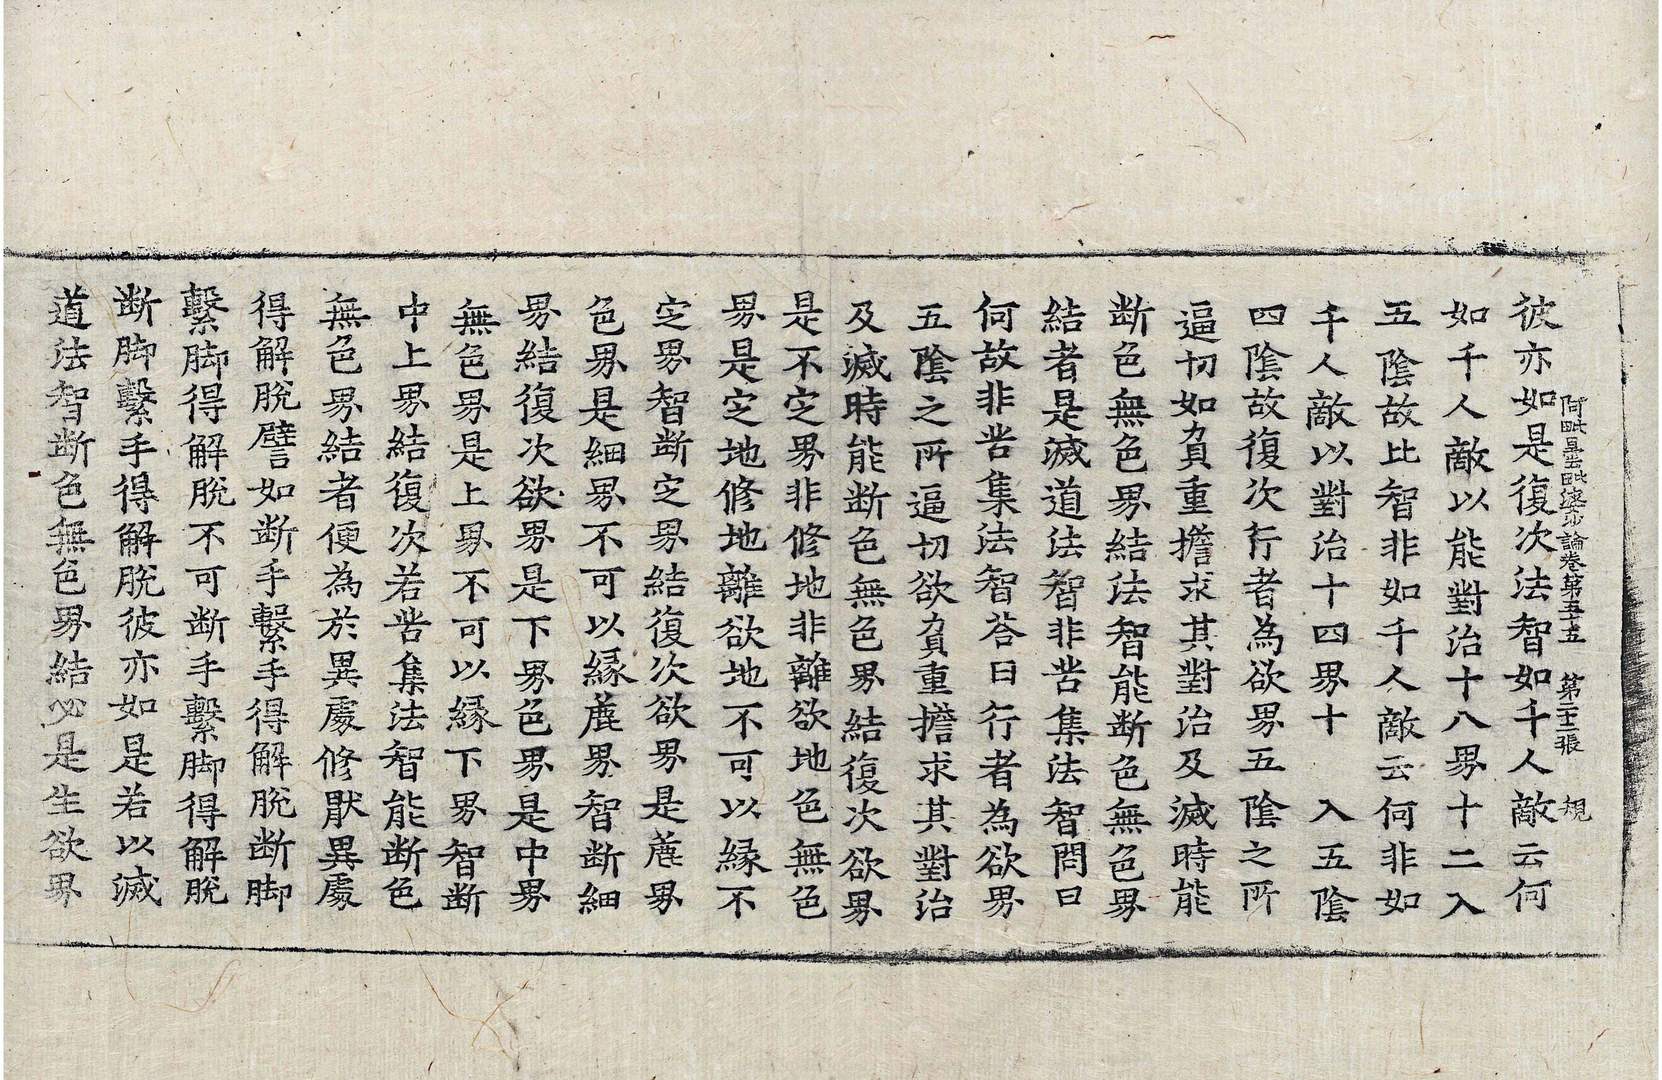 阿毗曇毗婆沙論卷第五十五 第二十二張 規
彼亦如是復次法智如千人敵云何
如千人敵以能對治十八界十二入
五陰故比智非如千人敵云何非如
千人敵以對治十四界十 入五陰
四陰故復次行者為欲界五陰之所
逼切如負重擔求其對治及滅時能
断色無色界結法智能断色無色界
結者是滅道法智非苦集法智問曰
何故非苦集法智荅曰行者為欲界
五陰之所逼切欲負重擔求其對治
及滅時能断色無色界結復次欲界
是不㝎界非修地非離欲地色無色
界是㝎地修地離欲地不可以緣不
㝎界智断㝎界結復次欲界是麁界
色界是細界不可以緣麁界智断細
界結復次欲界是下界色界是中界
無色界是上界不可以緣下界智断
中上界結復次若苦集法智能断色
無色界結者便為於異處修猒異處
得解脫譬如断手繫手得解脫断脚
繫脚得解脫不可断手繫脚得解脫
断脚繫手得解脫彼亦如是若以滅
道法智断色無色界結必是生欲界